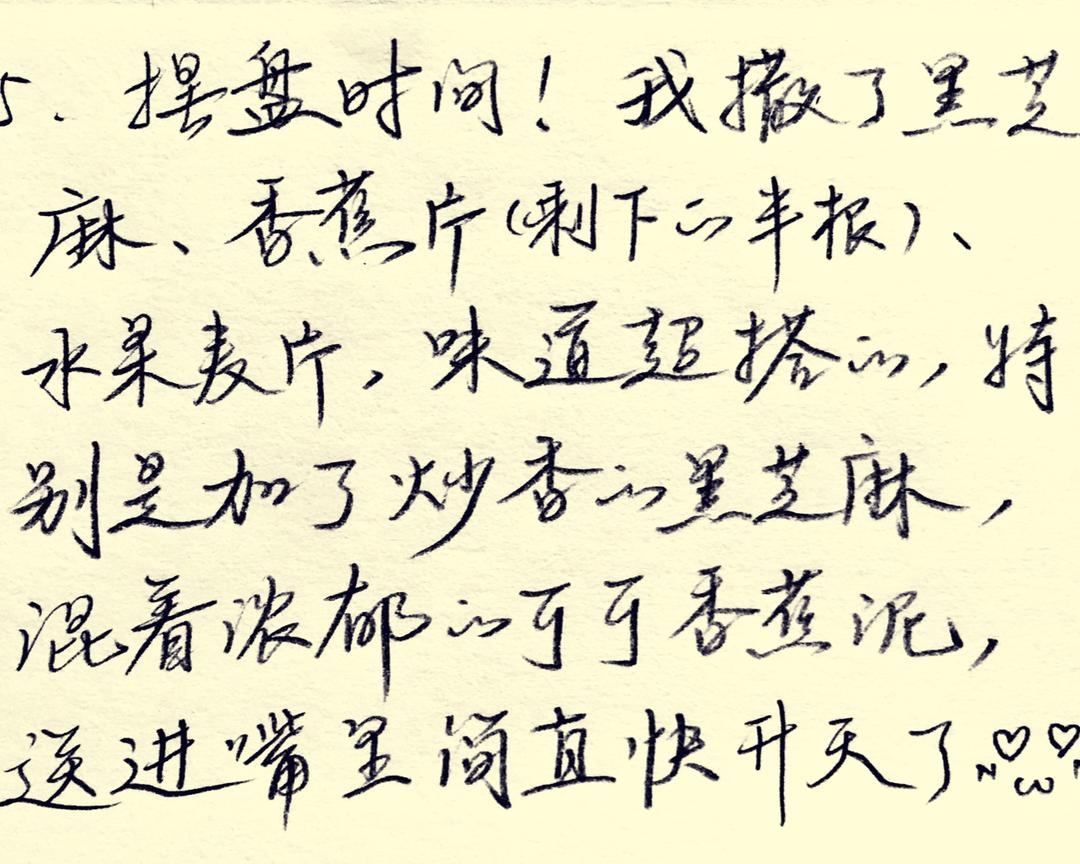 5. 摆盘时间！ 我撒了黑芝
麻、香蕉片（剩下的半根）、
水果麦片，味道超搭的，特
别是加了炒香的黑芝麻，
混着浓郁的可可香蕉泥，
送进嘴里简直快升天了